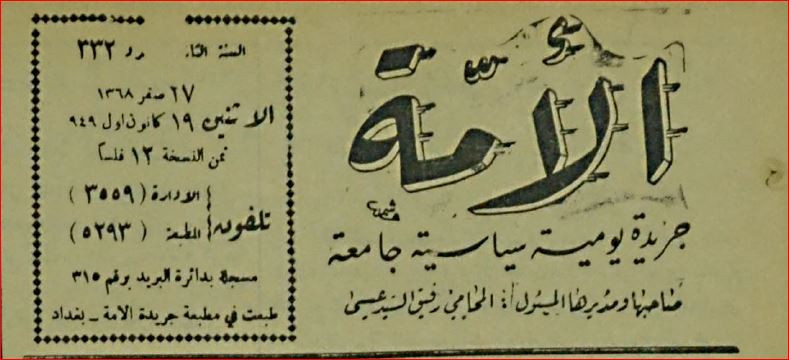 الأمة
جريدة يومية سياسية جامعة
صاحبها ومديرها المسئول : المحامي رفيق السيد عيسى
السنة ٣٣٢
٢٧ صفر ١٣٦٨
الاثنين ١٩ كانون اول ٩٤٩
ثمن النسخة ١٢ فلساً
تلفون { الادارة ( ٣٥٥٩ )
المطبعة ( ٥٢٩٣ )
مسجلة بدائرة البريد برقم ٣١٥
طبعت في مطبعة جريدة الأمة – بغداد